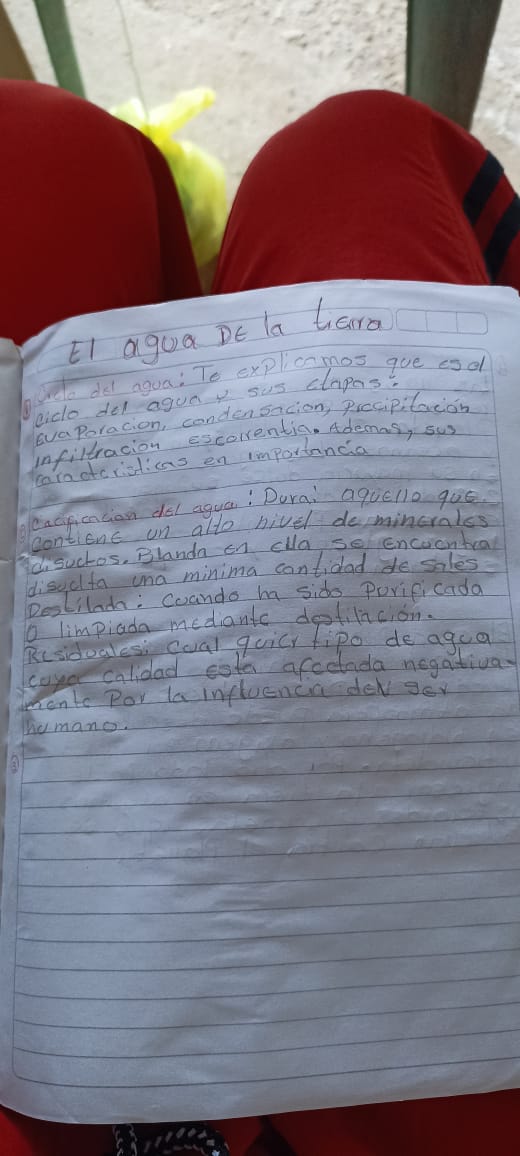 El agua De la tierra
① Ciclo del agua: Te explicamos que es el
ciclo del agua y sus etapas:
Evaporacion, condensacion, precipitación
infiltracion escorrentia. Ademas, sus
caracteristicas en importancia
② Cacificacion del agua: Dura: aquello que
contiene un alto nivel de minerales
disueltos. Blanda en ella se encuentra
disuelta una minima cantidad de sales
Destilada: Cuando ha sido Purificada
o limpiada mediante destilación.
Residuales: Cual quier tipo de agua
cuya calidad esta afectada negativa-
mente Por la influencia del ser
humano.
③